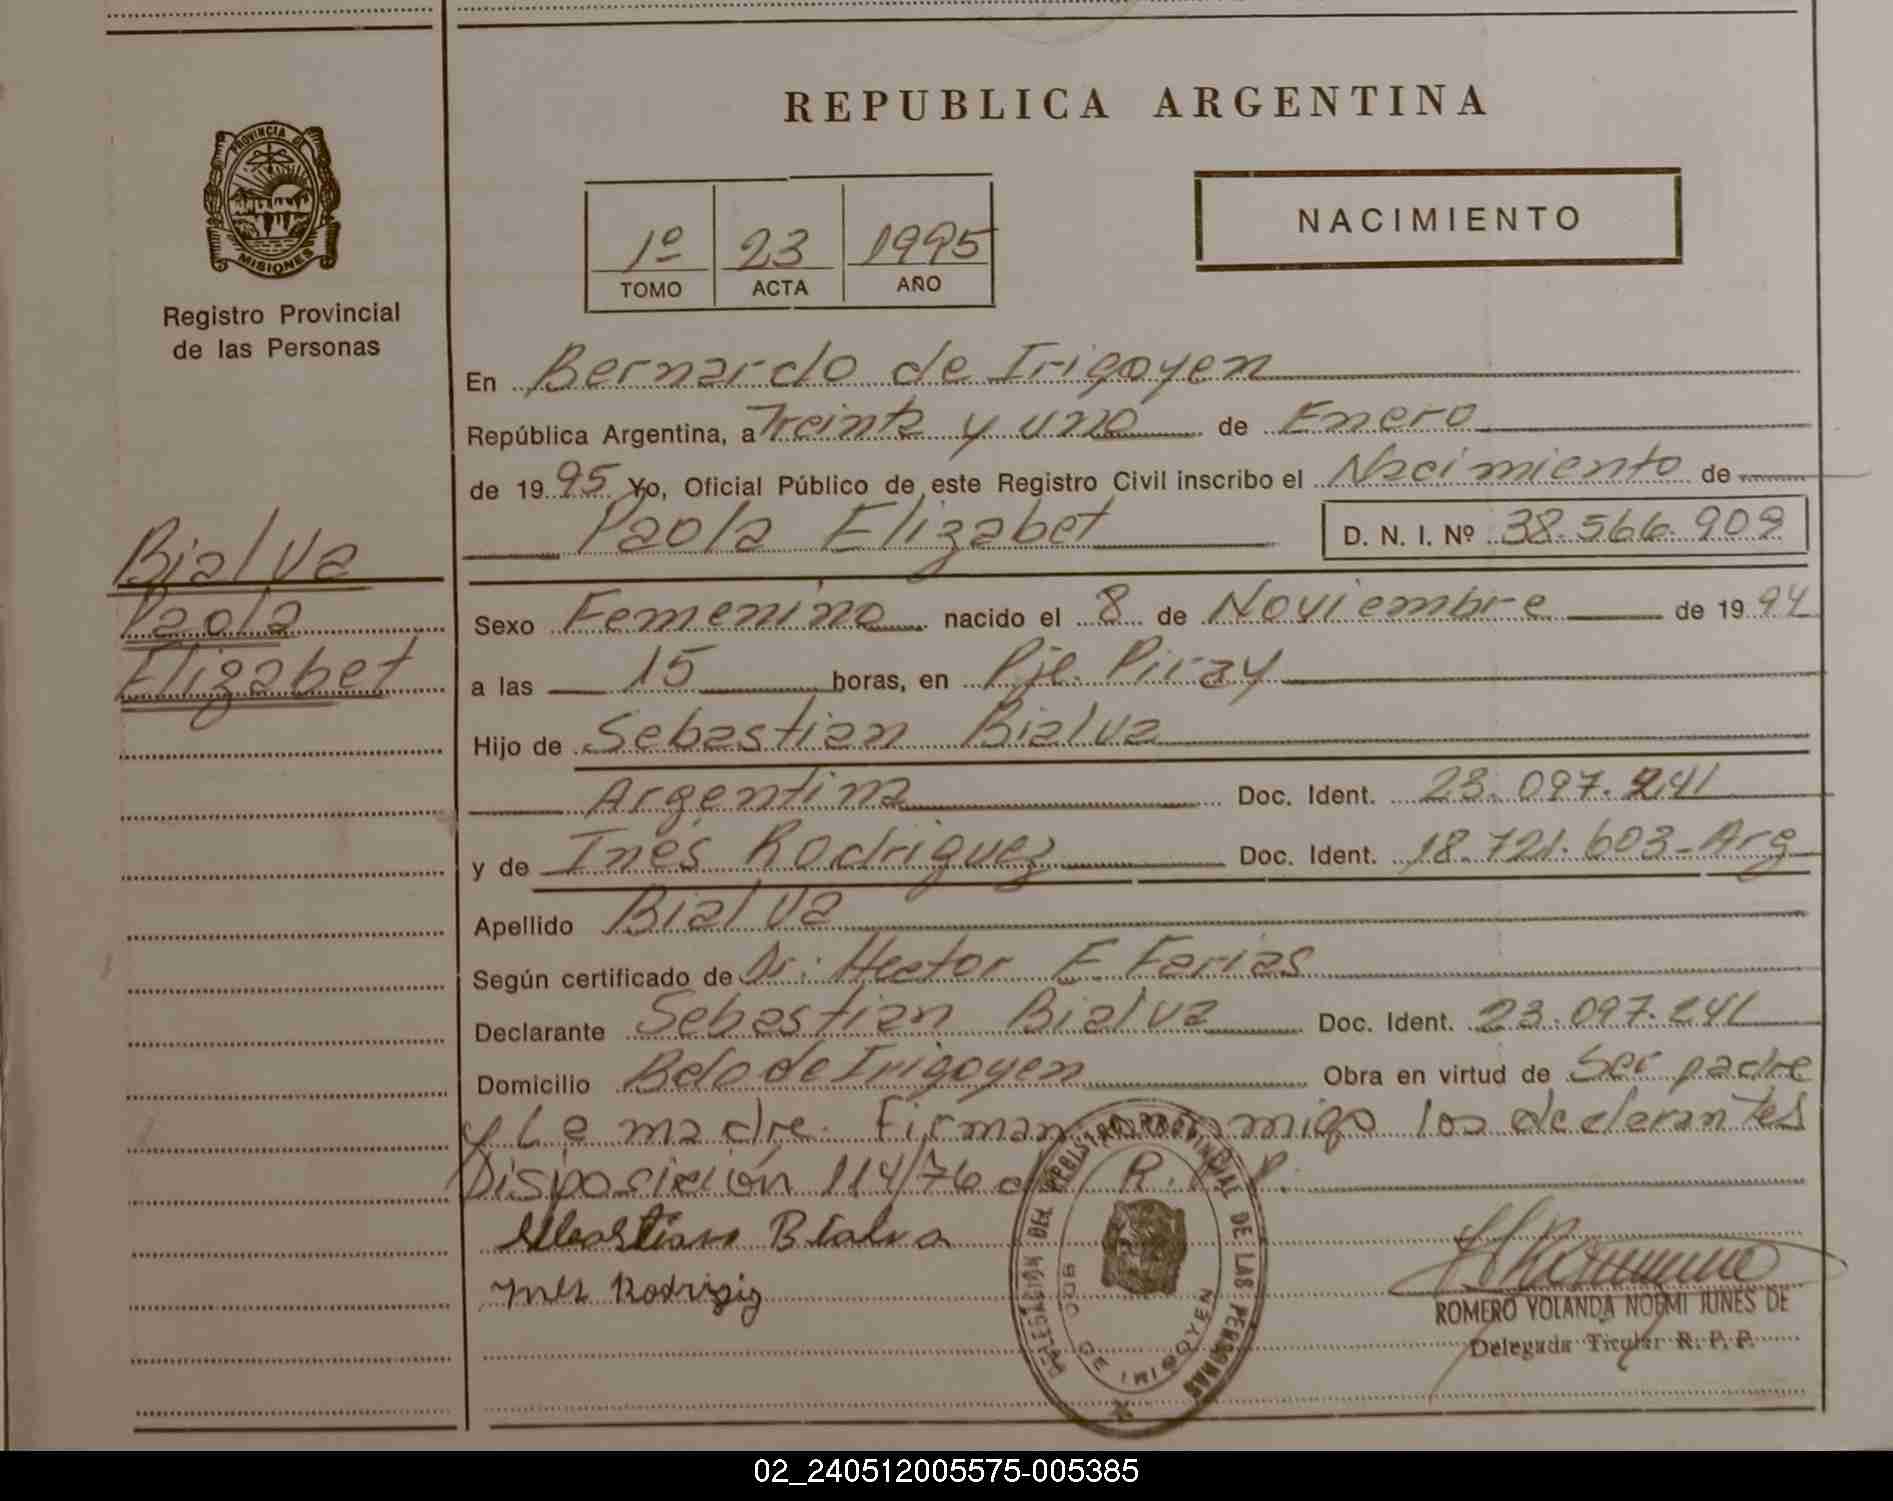 REPUBLICA ARGENTINA
PROVINCIA DE
MISIONES
Registro Provincial
de las Personas
1º 23 1995
TOMO ACTA AÑO
NACIMIENTO
En Bernardo de Irigoyen
República Argentina, a Treinta y uno de Enero
de 1995 Yo, Oficial Público de este Registro Civil inscribo el Nacimiento de
Paola Elizabet D. N. I. Nº 38.566.909
Bialva
Paola
Elizabet
Sexo Femenino nacido el 8 de Noviembre de 1994
a las 15 horas, en Pje. Piray
Hijo de Sebastian Bialva
Argentina Doc. Ident. 23.097.241
y de Inés Rodriguez Doc. Ident. 18.721.603-Arg
Apellido Bialva
Según certificado de Dr. Hector E Farias
Declarante Sebastian Bialva Doc. Ident. 23.097.241
Domicilio Bdo de Irigoyen Obra en virtud de Ser padre
y La madre. Firman conmigo los declarantes
Disposición 114/76 R. P.
Sebastian Bialva
Ines Rodrigiz
DELEGACIÓN DEL REGISTRO PROVINCIAL DE LAS PERSONAS
BDO DE IRIGOYEN
ROMERO YOLANDA NOEMI IUNES DE
Delegada Titular R. P. P.
02_240512005575-005385